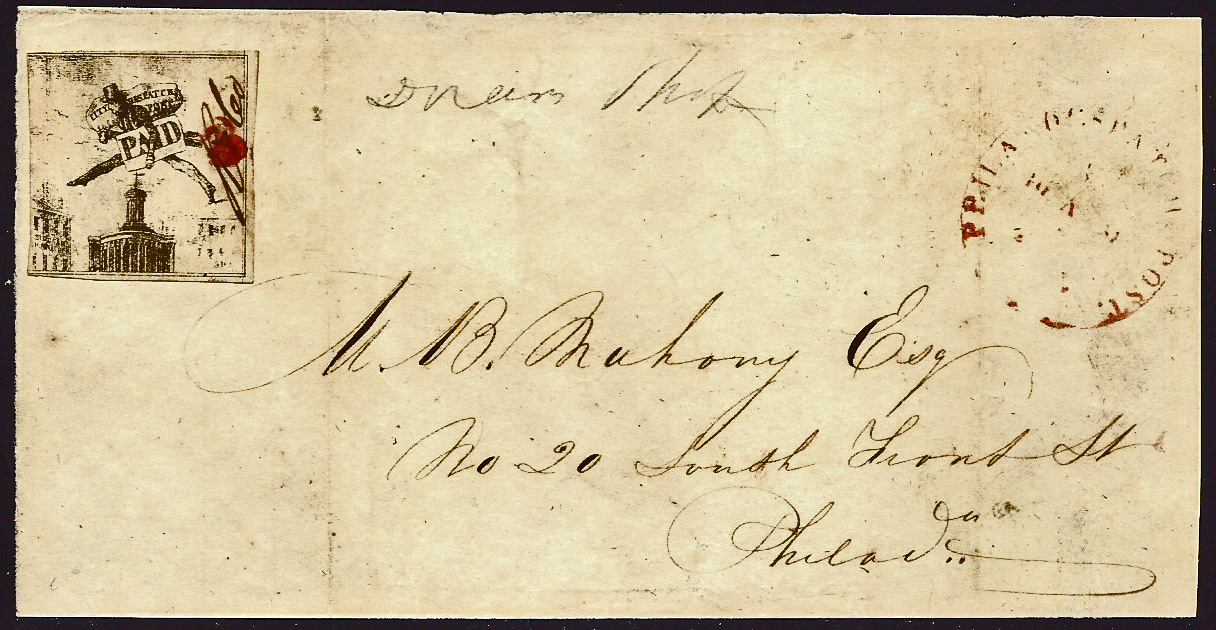 PAID
PHILA DESPATCH POST
M. B. Mahony Esq
No 20 South Front St
Philada